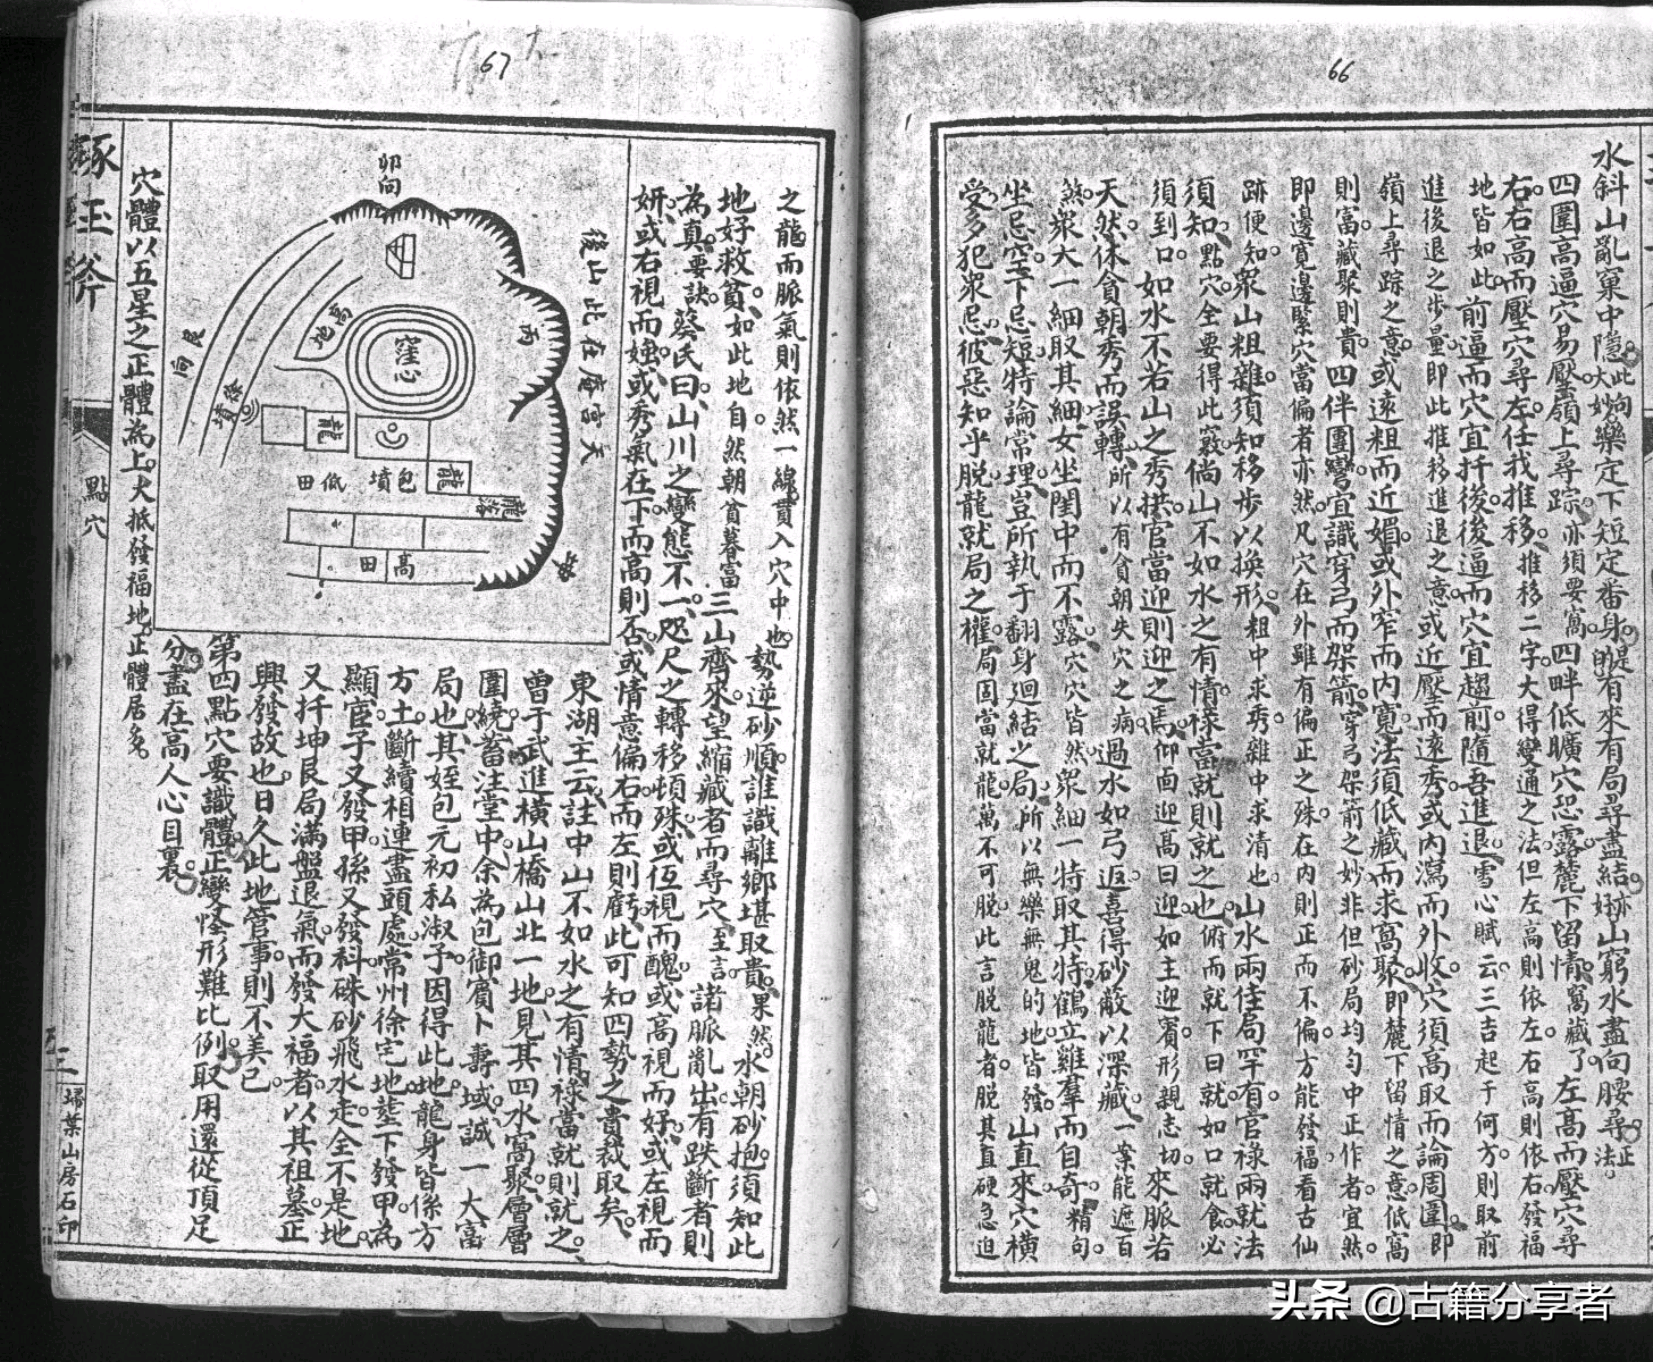 66
水斜山亂窠中隱此向大妙樂定下短定番身是的有來有局尋盡結好跡山窮水盡向腰尋正法
四圍高逼穴易壓嶺上尋踪亦須要窩四畔低曠穴恐露麓下留情窩藏了左高而壓穴尋
右右高而壓穴尋左任我推移推移二字大得變通之法但左高則依左右高則依右發福
地皆如此前逼而穴宜扦後後逼而穴宜趨前隨吾進退雪心賦云三吉起于何方則取前
進後退之步量即此推移進退之意或近壓而遠秀或內瀉而外收穴須高取而論周圍即
嶺上尋踪之意或遠粗而近媚或外窄而內寬法須低藏而求窩聚即麓下留情之意低窩
則富藏聚則貴四伴團彎宜識穿弓而架箭穿弓架箭之妙非但砂局均勻中正作者宜然
即邊寬邊緊穴當偏者亦然凡穴在外雖有偏正之殊在內則正而不偏方能發福看古仙
跡便知眾山粗雜須知移步以換形粗中求秀雜中求清也山水兩佳局罕有官祿兩就法
須知點穴全要得此竅倘山不如水之有情祿當就則就之也俯而就下曰就如口就食必
須到口如水不若山之秀拱官當迎則迎之焉仰面迎高曰迎如主迎賓形親志切來脈若
天然休貪朝秀而誤轉所以有貪朝失穴之病過水如弓返喜得砂蔽以深藏一案能遮百
煞眾大一細取其細女坐閨中而不露穴穴皆然眾細一特取其特鶴立雞羣而自奇精句
坐忌空下忌短特論常理豈所執于翻身廻結之局所以無樂無鬼的地皆發山直來穴橫
受多犯眾忌彼惡知乎脫龍就局之權局固當就龍萬不可脫此言脫龍者脫其直硬急迫
67
之龍而脈氣則依然一線貫入穴中也勢逆砂順誰識離鄉堪取貴果然水朝砂抱須知此
地好救貧如此地自然朝貧暮富三山齊來望縮藏者而尋穴至言諸脈亂出有跌斷者則
為真要訣蔡氏曰山川之變態不一咫尺之轉移頓殊或伍視而醜或高視而好或左視而
妍或右視而媸或秀氣在下而高則否或情意偏右而左則虧此可知四勢之貴裁取矣
東湖王云註中山不如水之有情祿當就則就之
曾于武進橫山橋山北一地見其四水窩聚層層
圍繞蓄注堂中余為包御賓卜壽域誠一大富
局也其姪包元初私淑子因得此地龍身皆係方
方土斷續相連盡頭處常州徐宅地塟下發甲為
顯宦子又發甲孫又發科硃砂飛水走全不是地
又扦坤艮局滿盤退氣而發大福者以其祖墓正
興發故也日久此地管事則不美已
第四點穴要識體正變怪形難比例取用還從頂足
分盡在高人心目裏
後山此在癘宮天
卯向
丙
窪心
高地
艮向
徐墳
龍
龍
包墳
低田
高田
穴體以五星之正體為上大抵發福地正體居多
琢玉斧
點穴
掃葉山房石印
头条 @古籍分享者